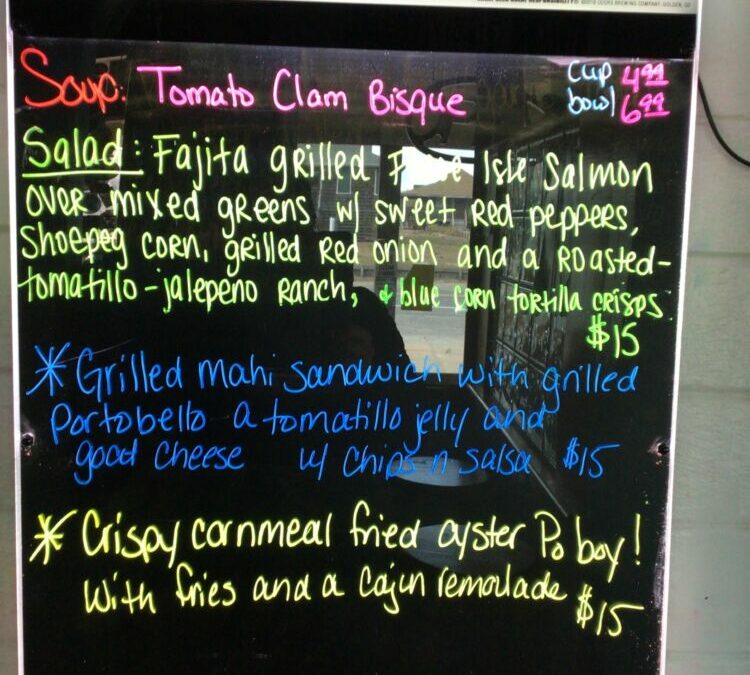 ©2010 COORS BREWING COMPANY, GOLDEN, CO
Soup: Tomato Clam Bisque cup 4.99
bowl 6.99
Salad: Fajita grilled Isle Salmon
over mixed greens w/ sweet Red peppers,
Shoepeg corn, grilled Red onion and a Roasted-
tomatillo-jalepeno Ranch, & blue corn tortilla crisps
$15
* Grilled mahi sandwich with grilled
Portobello a tomatillo jelly and
good cheese w/ chips n salsa $15
* Crispy cornmeal fried oyster Po boy!
With fries and a Cajun remoulade $15